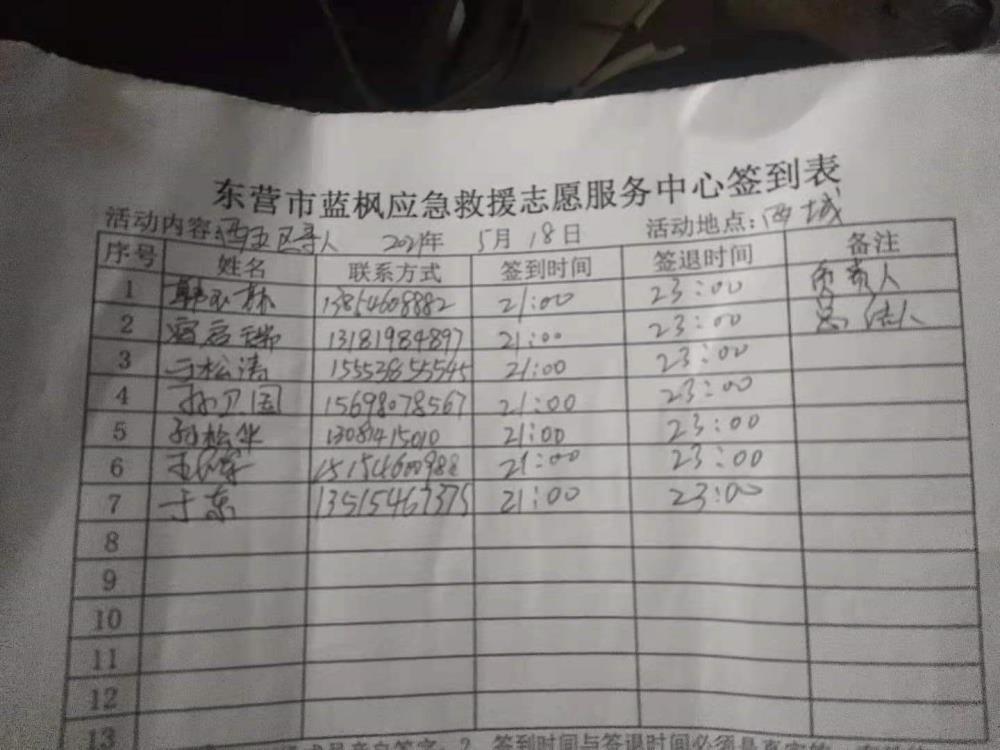 东营市蓝枫应急救援志愿服务中心签到表
活动内容:西五区寻人 2021年 5月 18日 活动地点:西城
序号 姓名 联系方式 签到时间 签退时间 备注
1 13854608882 21:00 23:00 负责人
2 13181984897 21:00 23:00 总结人
3 于松涛 15553855545 21:00 23:00
4 孙卫国 15698078567 21:00 23:00
5 孙松华 13081415010 21:00 23:00
6 15154600988 21:00 23:00
7 于东 13515467375 21:00 23:00
8
9
10
11
12
13
签到时间与签退时间必须是真实